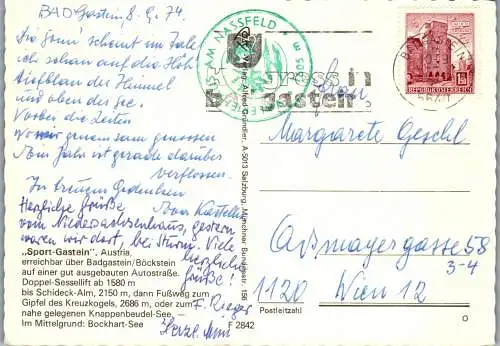 BAD Gastein, 8.9.74.
Die Sonn' scheint im Tale
ich schau auf die Höh'
Aufblau der Himmel
und oben der See.
Vorbei die Zeiten
Wir gemeinsam genossen
Ein Jahr ist gerade darüber
verflossen.
In treuem Gedenken
Herzliche Grüße
vom Niedersachsenhaus, gestern
waren wir dort, bei Sturm. Viele
herzliche
Grüße!
F. Rieger
„Sport-Gastein", Austria,
erreichbar über Badgastein/Böckstein
auf einer gut ausgebauten Autostraße.
Doppel-Sessellift ab 1580 m
bis Schideck-Alm, 2150 m, dann Fußweg zum
Gipfel des Kreuzkogels, 2686 m, oder zum
nahe gelegenen Knappenbeudel-See. —
Im Mittelgrund: Bockhart-See
F 2842
Verlag Alfred Gründler, A-5013 Salzburg, Münchner Bundesstr. 156
AM NASSFELD
gross in
badgastein
REPUBLIK ÖSTERREICH
Frau
Margarete Geschl
Aßmayergasse 58
3-4
1120 Wien 12
Postleitzahl